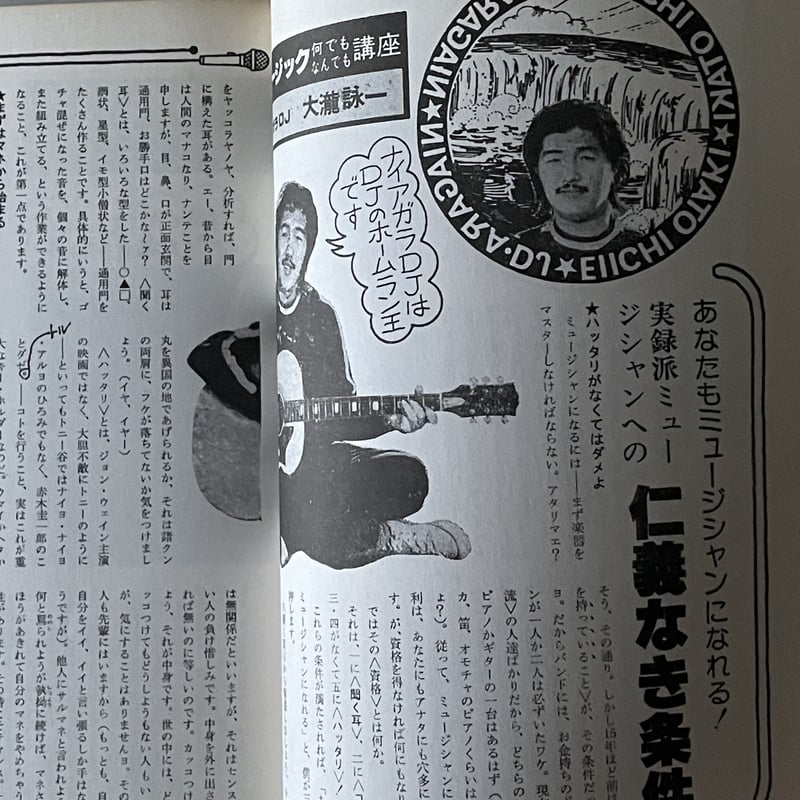 ジック何でもなんでも講座
DJ 大瀧詠一
DJ★EIICHI
あなたもミュージシャンになれる！
実録派ミュー
ジシャンへの
仁義なき条件
ナイアガラDJは
DJのホームラン王
です
★ハッタリがなくてはダメよ
ミュージシャンになるには――まず楽器を
マスターしなければならない。アタリマエ？
そう、その通り。しかし15年ほど前は
を持っていること＞が、その条件だ
ヨ。だからバンドには、お金持ちの
ンが一人か二人は必ずいたワケ。現
流＞の人達ばかりだから、どちらの
ピアノかギターの一台はあるはず（
カ、笛、オモチャのピアノくらいは
よ？）。従って、ミュージシャンに
利は、あなたにもアナタにも穴多に
す。が、資格を得なければ何にもなり
ではその＜資格＞とは何か。
それは、一に＜聞く耳＞、二に＜コ
三・四がなくて五に＜ハッタリ＞！
これらの条件が満たされれば、「
ミュージシャンになれる」と、僕が
押します。
をヤッコラヤノヤ、分析すれば、門
に構えた耳がある。エー、昔から目
は人間のマナコなり、ナンテことを
申しますが、目、鼻、口が正面玄関で、耳は
通用門、お勝手口はどこかな～ァ？ ＜聞く
耳＞とは、いろいろな型をした――○▲□、
菌状、星型、イモ型小僧状など――通用門を
たくさん作ることです。具体的にいうと、ゴ
チャ混ぜになった音を、個々の音に解体し、
また組み立てる、という作業ができるように
なること、これが第一点であります。
★まずはマネから始まる
丸を異国の地であげられるか、それは諸クン
の両肩に、フケが落ちてないか気をつけまし
ょう。（イヤ、イヤー）
＜ハッタリ＞とは、ジョン・ウェイン主演
の映画ではなく、大胆不敵にトニーのように
――といってもトニー谷ではナイョ・ナイョ
・アルヨのひろみでもなく、赤木圭一郎のこ
とダゼ――コトを行うこと、実はこれが重
トル
は無関係だといいますが、それはセンス
い人の負け惜しみです。中身を外に出さ
れば無いのに等しいのです。カッコつけ
ょう、それが中身です。世の中には、ど
ッコつけてもどうしようもない人もい
が、気にすることはありませんョ。その
人も先輩にはいますから（もっとも、自
自分をイイ、イイと言い張るしか手はな
うですが）。他人にサルマネと言われよ
何と罵られようが執拗に続ければ、マネさ
ほうがあきれて自分のマネをやめちゃう